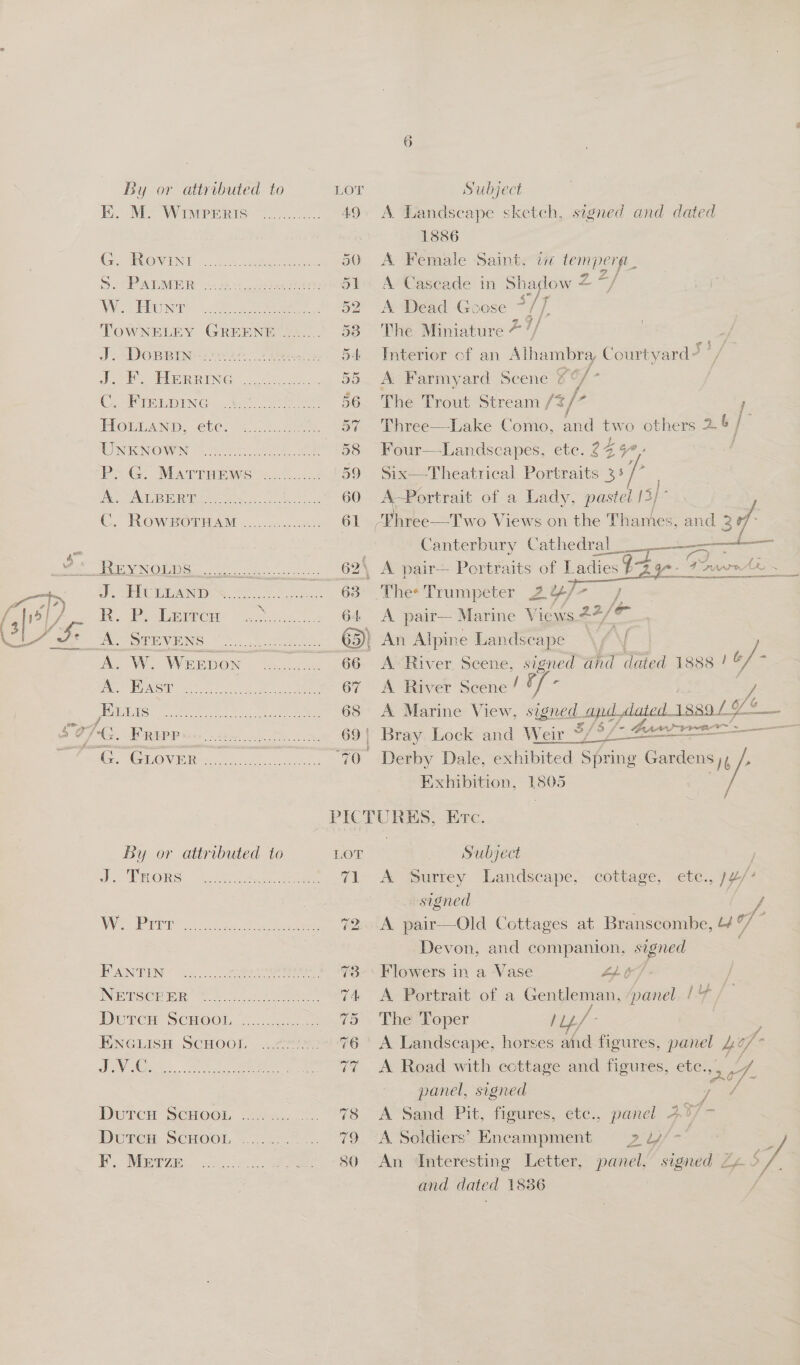 6
By or attributed to LOT Subject
E. M. WIMPERIS ............ 49 A Landscape sketch, signed and dated
1886
G. ROVINI ............ 50 A Female Saint. in tempera
S. PALMER ............ 51 A Cascade in Shadow
W. HUNT ............ 52 A Dead Goose
TOWNELEY GREENE ....... 53 The Miniature
J. DOBBIN ............ 54 Interior of an Alhambra Courtyard
J. F. HERRING ............ 55 A Farmyard Scene
C. FIELDING ............ 56 The Trout Stream
HOLLAND, etc. ............ 57 Three—Lake Como, and two others 26/
UNKNOWN ............ 58 Four—Landscapes, etc.
P. G. MATTHEWS ............ 59 Six—Theatrical Portraits
A. ALBERT ............ 60 A Portrait of a Lady, pastel 15/-
C. ROWBOTHAM ............ 61 Three—Two Views on the Thames, and
Canterbury Cathedral
REYNOLDS ............ 62 A pair— Portraits of Ladies
J. HOLLAND ............ 63 The Trumpeter 24/-
R. P. LEITCH ............ 64 A pair— Marine Views 22/-
A. STEVENS ............ 65 An Alpine Landscape
A. W. WEEDON ............ 66 A River Scene, signed and dated 1888
A. EAST ............ 67 A River Scene
ELLIS ............ 68 A Marine View, signed and dated 1889
G. FRIPP ............ 69 Bray Lock and Weir
G. GLOVER ............ 70 Derby Dale, exhibited Spring Gardens
Exhibition, 1805
PICTURES, ETC.
By or attributed to LOT Subject
J. THORS ............ 71 A Surrey Landscape, cottage, etc., 14/-
signed
W. PITT ............ 72 A pair—Old Cottages at Branscombe,
Devon, and companion, signed
FANTIN ............ 73 Flowers in a Vase
NETSCHER ............ 74 A Portrait of a Gentleman, panel 14/-
DUTCH SCHOOL ............ 75 The Toper 14/-
ENGLISH SCHOOL ............ 76 A Landscape, horses and figures, panel
J.V.C. ............ 77 A Road with cottage and figures, etc.,
panel, signed
DUTCH SCHOOL ............ 78 A Sand Pit, figures, etc., panel
DUTCH SCHOOL ............ 79 A Soldiers' Encampment 24/-
F. METZE ............ 80 An Interesting Letter, panel, signed
and dated 1836